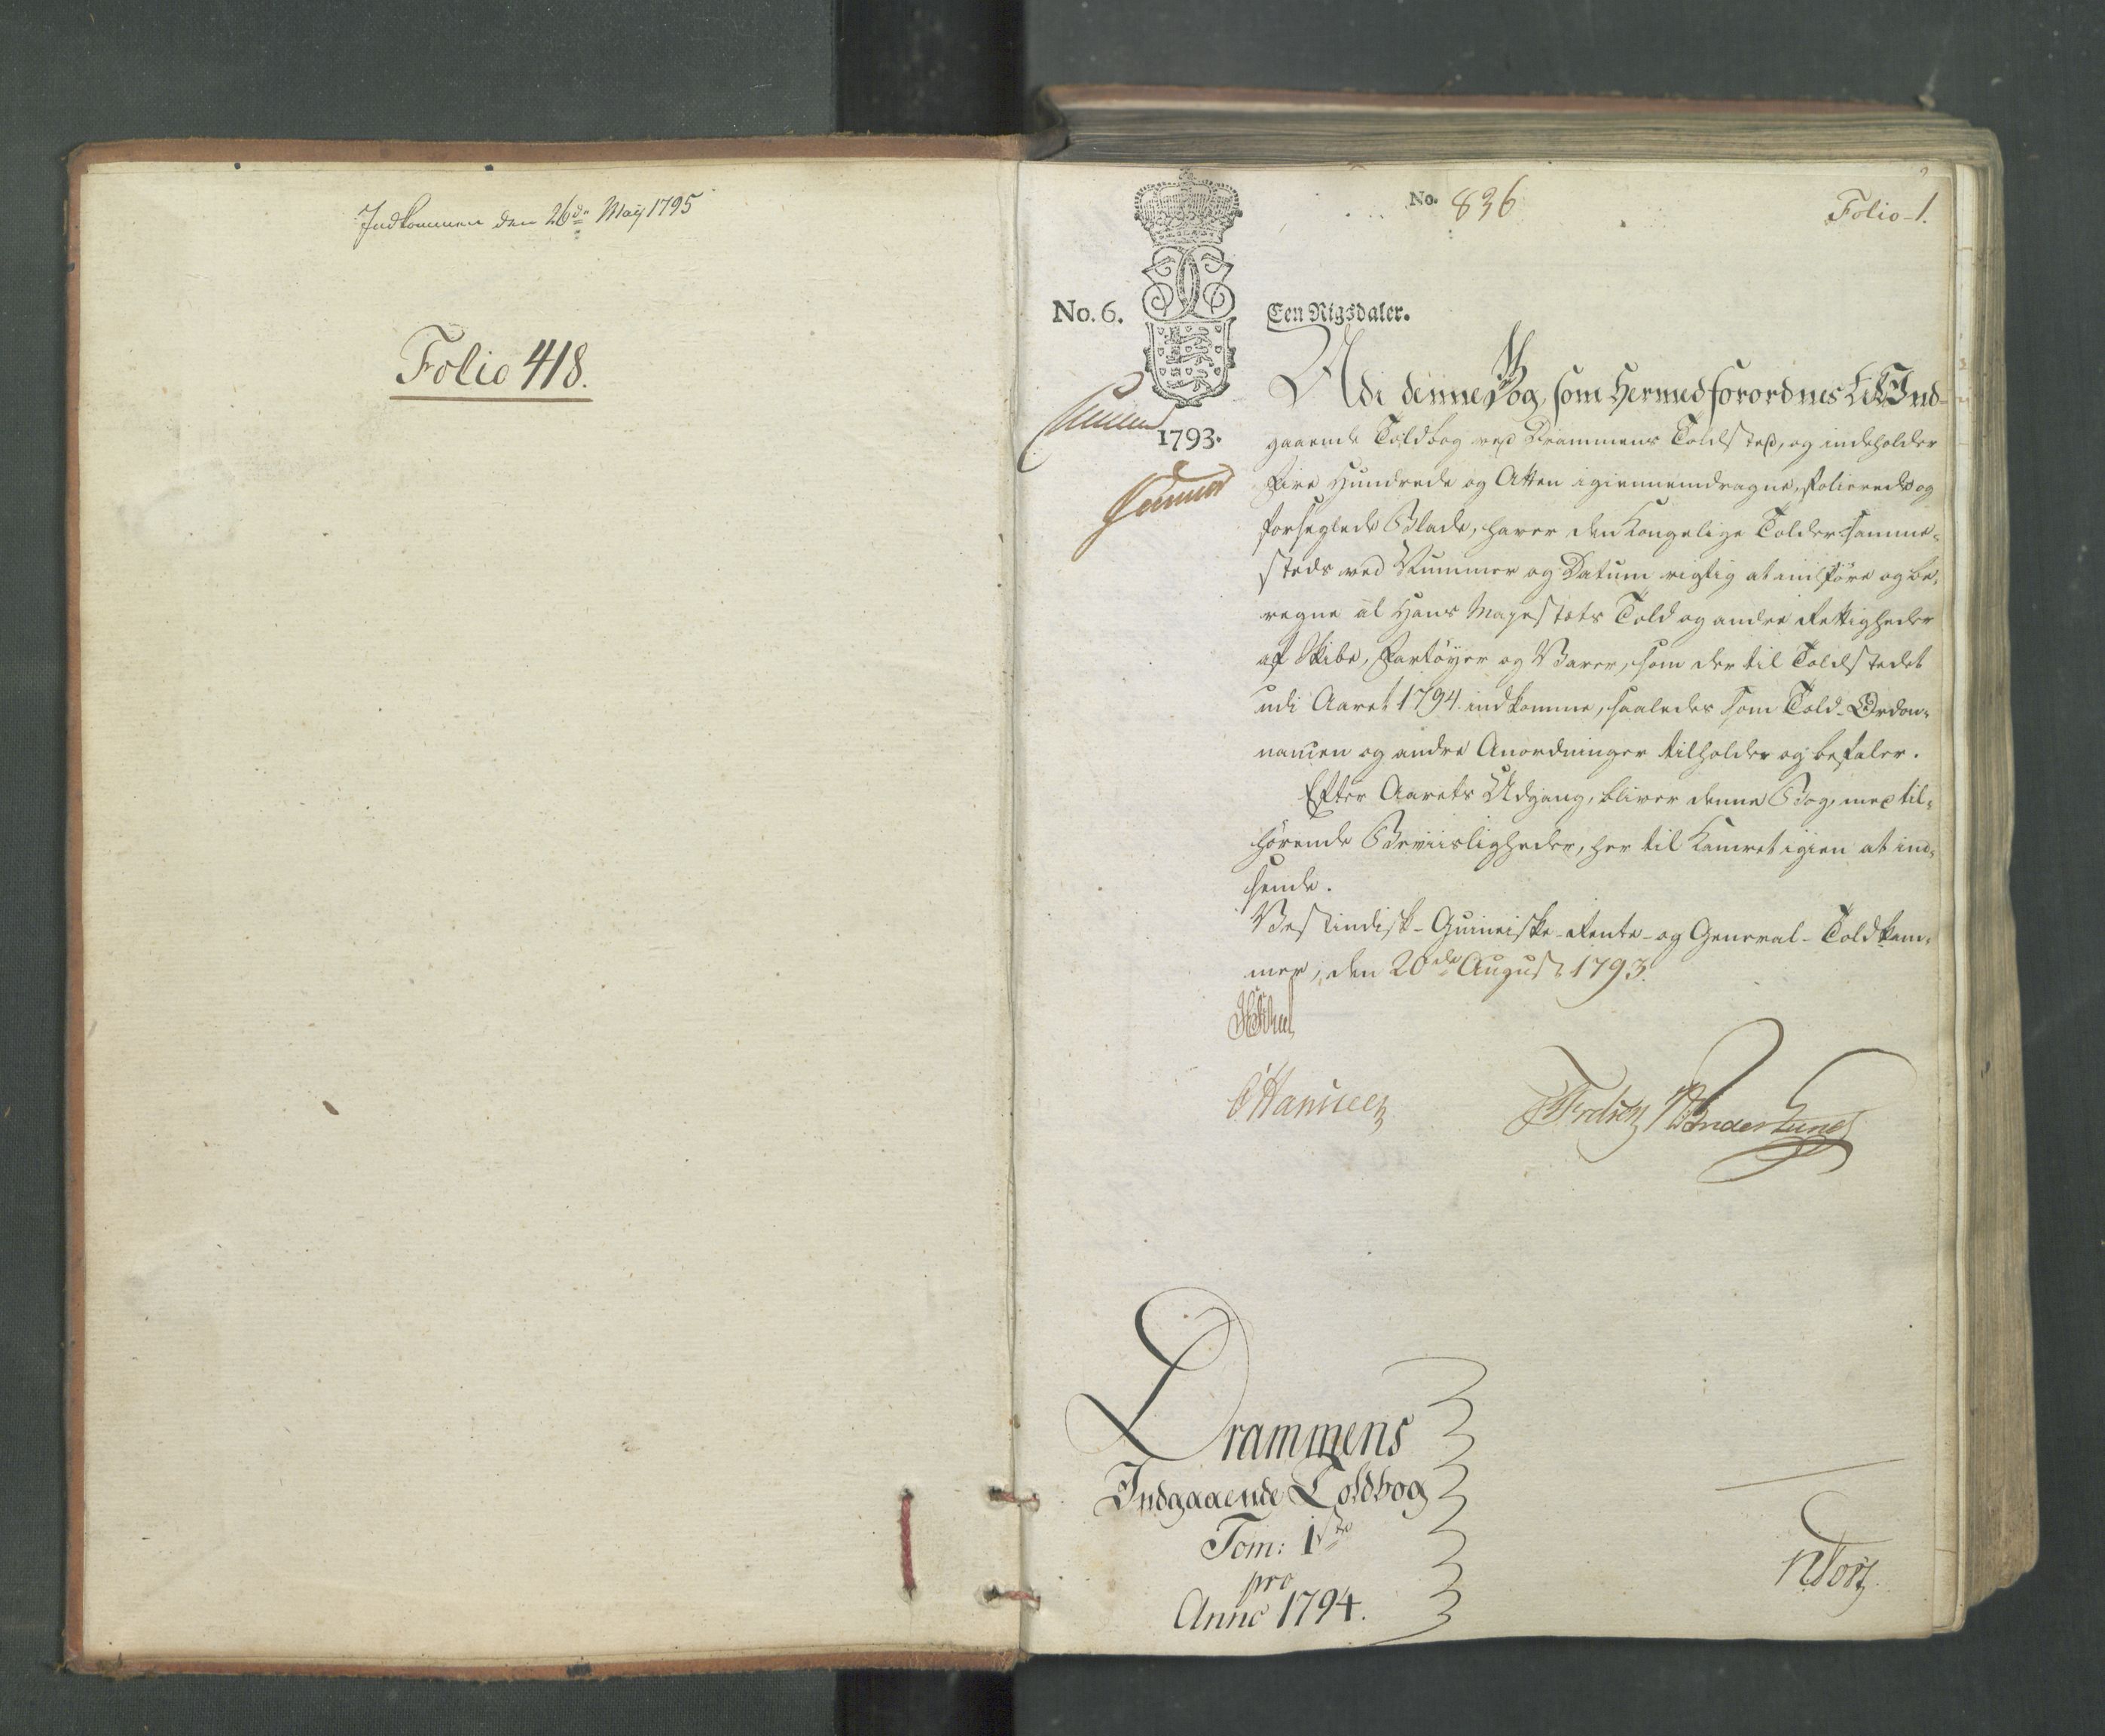 Indkommen den 26de May 1795
Folio 418.
No. 836
Folio 1.
No. 6.
Een Rigsdaler.
1793.
Udi denne Bog, som hermed forordnes til Ind-
gaaende Toldbog ved Drammens Toldsted, og indeholder
Fire Hundrede og Atten igiennemdragne, folierede og
forseglede Blade, haver den Kongelige Tolder samme-
steds ved Nummer og Datum rigtig at indføre og be-
regne al Hans Majestæts Told og andre Rettigheder
af Skibe, Fartöyer og Varer, som der til Toldstedet
udi Aaret 1794 indkomme, saaledes som Told-Ordon-
nancen og andre Anordninger tilholder og befaler.
Efter Aarets Udgang, bliver denne Bog, med til-
hörende Beviisligheder, her til Kamret igien at ind-
sende.
Vestindisk-Guineiske-Rente- og General-Toldkam-
mer, den 20de August 1793.
Drammens
Indgaaende Toldbog
Tom: 1ste
pro
Anno 1794.